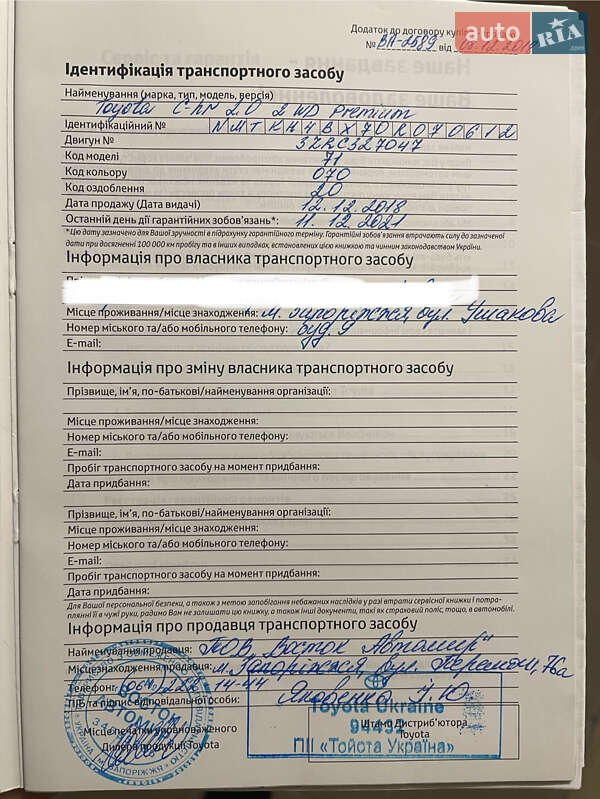 Додаток до договору купі
AUTO RIA.com
№ ВП-2589 від 05.12.201
Ідентифікація транспортного засобу
Найменування (марка, тип, модель, версія)
Toyota C-HR 2.0 2WD Premium
Ідентифікаційний № NMTKH4BX70R070612
Двигун № 3ZRC327047
Код моделі 71
Код кольору 070
Код оздоблення 20
Дата продажу (Дата видачі) 12.12.2018
Останній день дії гарантійних зобов'язань*: 11.12.2021
*Цю дату зазначено для Вашої зручності в підрахунку гарантійного терміну. Гарантійні зобов'язання втрачають силу до зазначеної
дати при досягненні 100 000 км пробігу та в інших випадках, встановлених цією книжкою та чинним законодавством України.
Інформація про власника транспортного засобу
Місце проживання/місце знаходження: м. Запоріжжя, вул. Ушакова
Номер міського та/або мобільного телефону: буд. 9
E-mail:
Інформація про зміну власника транспортного засобу
Прізвище, ім'я, по-батькові/найменування організації:
Місце проживання/місце знаходження:
Номер міського та/або мобільного телефону:
E-mail:
Пробіг транспортного засобу на момент придбання:
Дата придбання:
Прізвище, ім'я, по-батькові/найменування організації:
Місце проживання/місце знаходження:
Номер міського та/або мобільного телефону:
E-mail:
Пробіг транспортного засобу на момент придбання:
Дата придбання:
Для Вашої персональної безпеки, а також з метою запобігання небажаних наслідків у разі втрати сервісної книжки і потрап-
лянні її в чужі руки, радимо Вам не залишати цю книжку, а також інші документи, такі як страховий поліс, тощо, в автомобілі.
Інформація про продавця транспортного засобу
Найменування продавця: ТОВ "Восток Автомир"
Місцезнаходження продавця: м. Запоріжжя, вул. 76а
Телефон: 14-44
ПІБ та підпис відповідальної особи: Яковенко
Toyota Ukraine
94492
ПІІ «Тойота Україна»
Штамп Дистриб'ютора
Toyota
Місце печатки уповноваженого
Дилера продукції Toyota